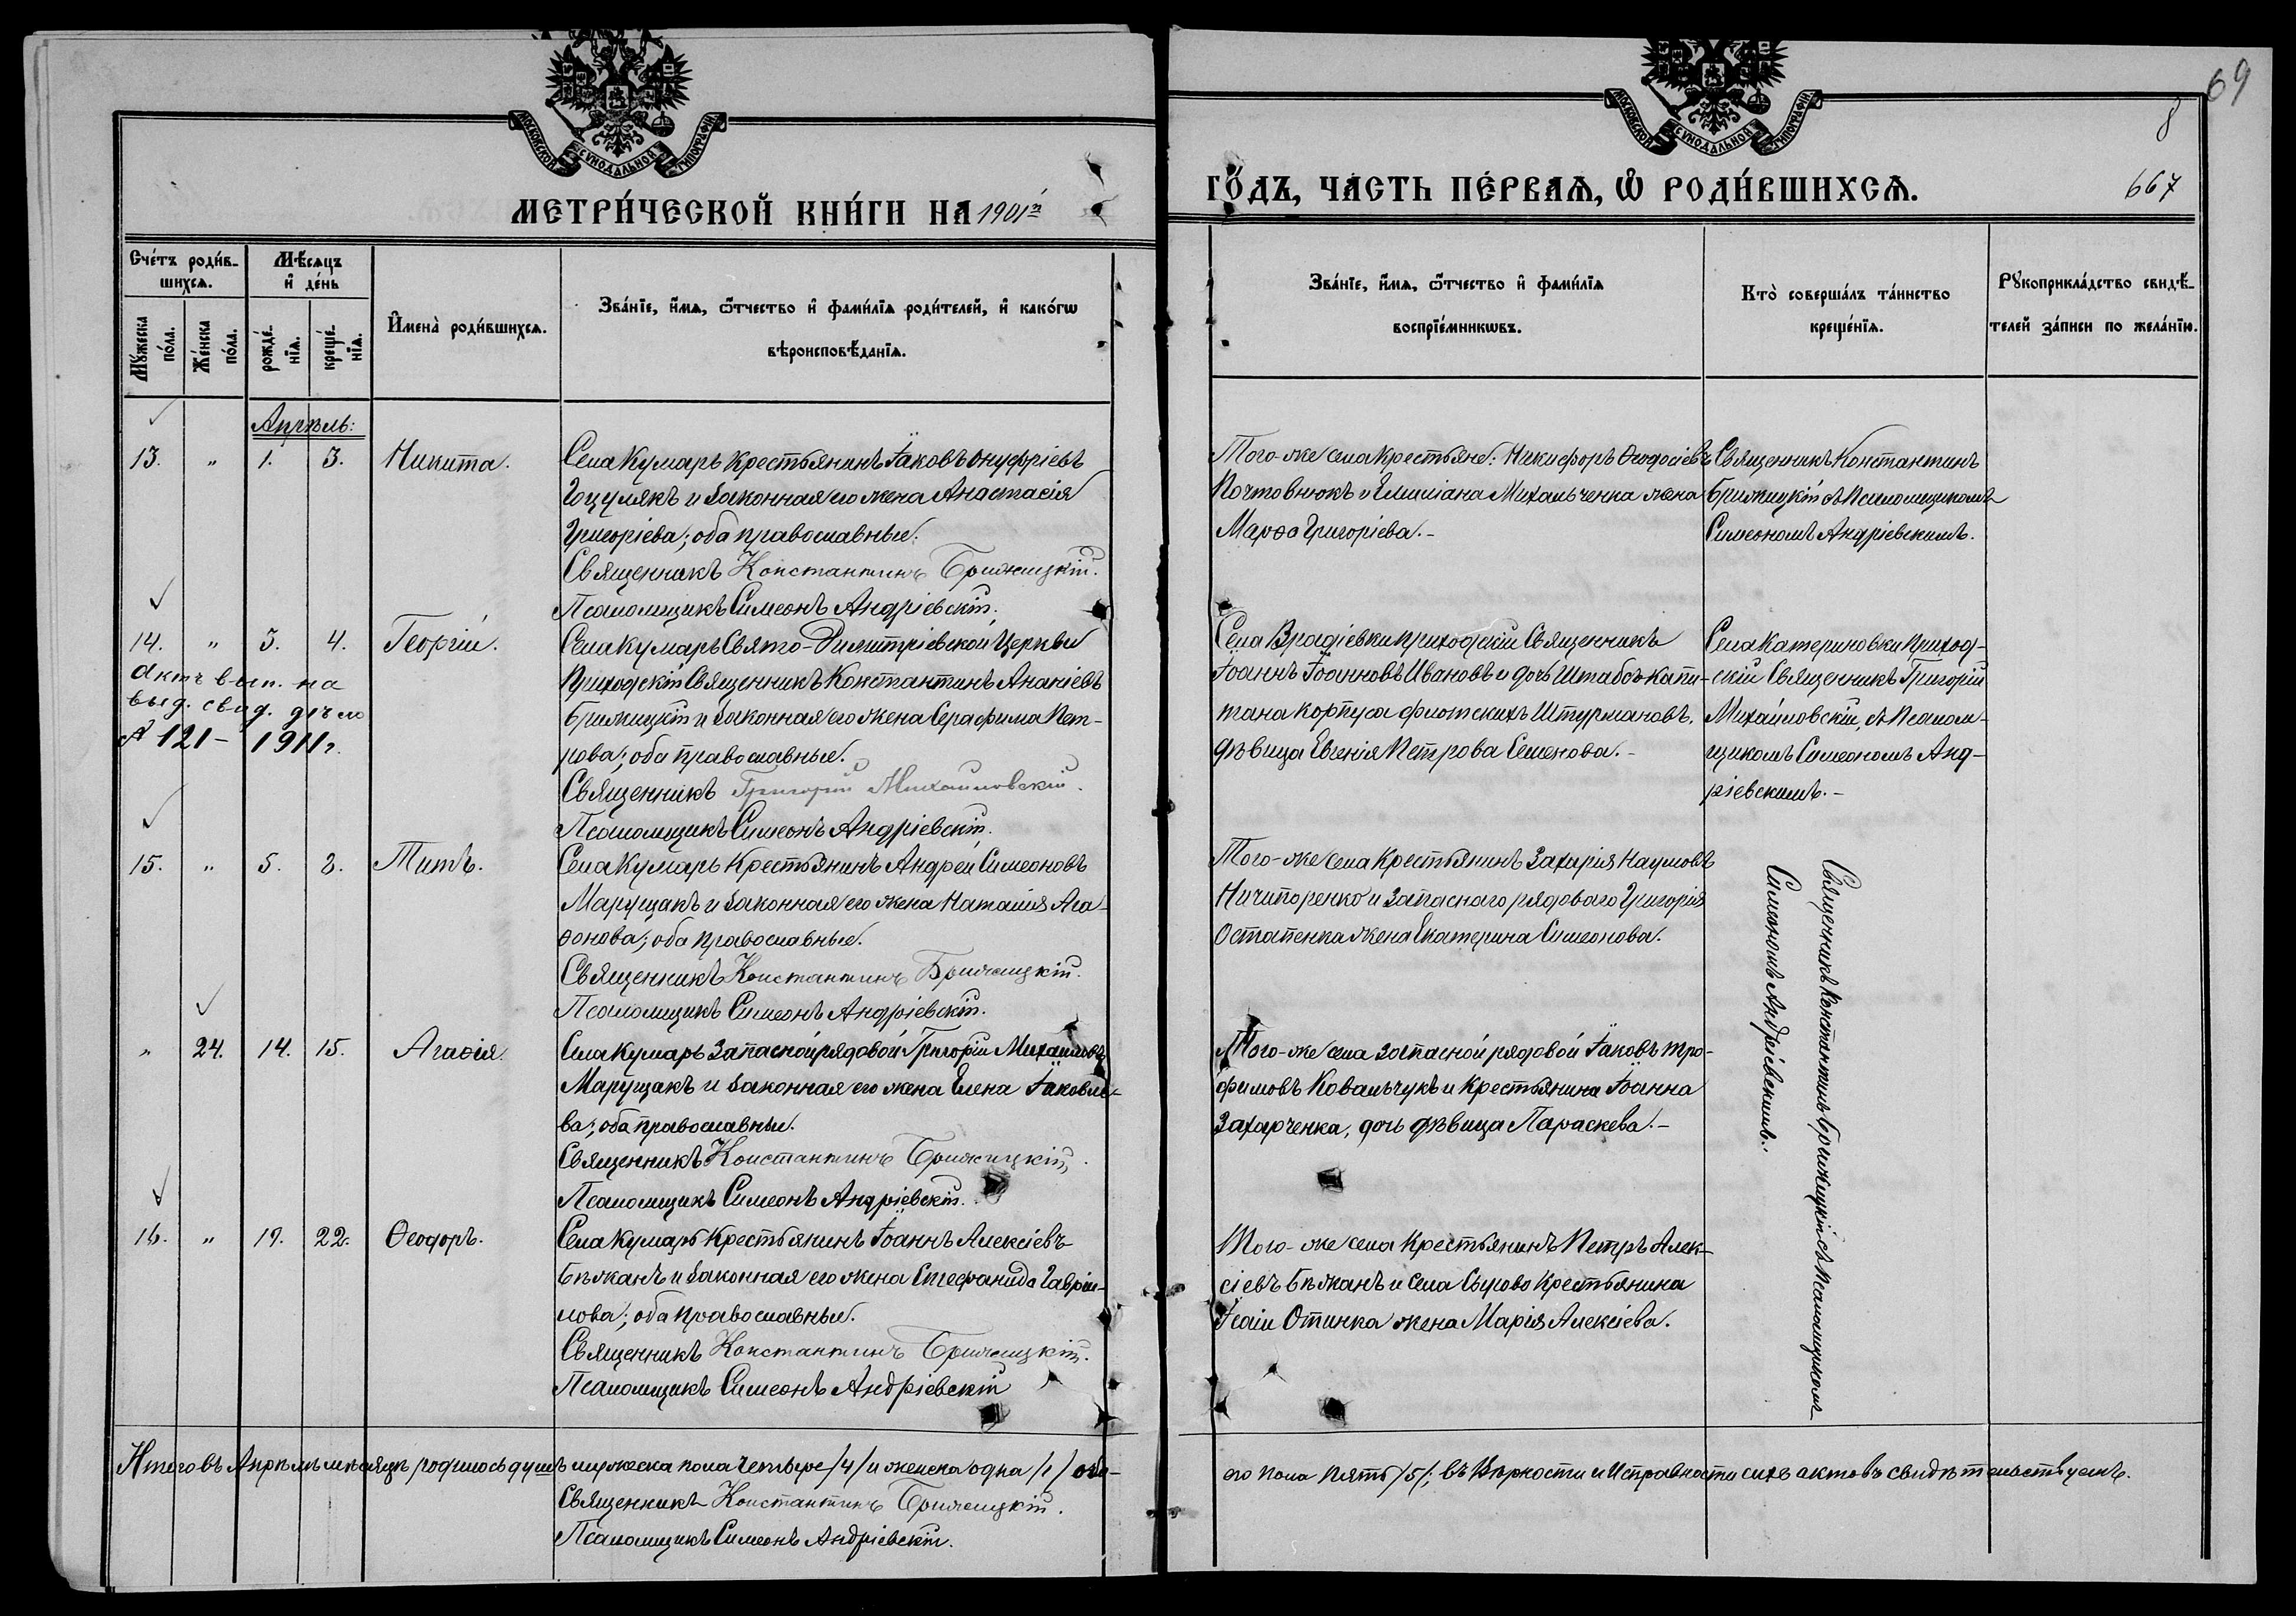 69
8
667
МОСКОВСКОЙ СѴНОДАЛЬНОЙ ТИПОГРАФІИ
МОСКОВСКОЙ СѴНОДАЛЬНОЙ ТИПОГРАФІИ
МЕТРИ́ЧЕСКОЙ КНИ́ГИ НА 1901й
ГО́ДЪ, ЧАСТЬ ПЕ́РВАѦ, Ѡ҆ РОДИ́ВШИХСѦ.
Сче́тъ роди́в-
шихсѧ.
Мꙋ́жеска по́ла.
Же́нска по́ла.
Мѣ́сѧцъ и҆ де́нь
рожде́-нїѧ.
креще́-нїѧ.
И҆мена̀ роди́вшихсѧ.
Зва́нїе, и҆́мѧ, ѻ҆́тчество и҆ фами́лїѧ роди́телей, и҆ како́гѡ
вѣроисповѣ́данїѧ.
Зва́нїе, и҆́мѧ, ѻ҆́тчество и҆ фами́лїѧ
воспрїе́мникѡвъ.
Кто̀ соверша́лъ та́инство
креще́нїѧ.
Рꙋкоприкла́дство свидѣ́-
телей за́писи по жела́нїю.
Апрѣль:
13. " 1. 3. Никита.
Села Кумарь Крестьянинъ Іаковъ Онуфріевъ
Гоцулякъ и законная его жена Анастасія
Григоріева; оба православные.
Священникъ Константинъ Брижицкій.
Псаломщикъ Симеонъ Андріевскій.
Того-же села Крестьяне: Никифоръ Ѳеодосіевъ
Почтовнюкъ и Емиліана Михальченка жена
Марѳа Григоріева.-
Священникъ Константинъ
Брижицкій съ Псаломщикомъ
Симеономъ Андріевскимъ.
14. " 3. 4. Георгій.
Актъ вып. на
выд. свид. дѣло
№ 121 - 1911 г.
Села Кумарь Свято-Димитріевской Церкви
Приходскій Священникъ Константинъ Ананіевъ
Брижицкій и законная его жена Серафима Пет-
рова; оба православные.
Священникъ Григорій Михайловскій.
Псаломщикъ Симеонъ Андріевскій.
Села Врадіевки приходскій Священникъ
Іоаннъ Іоанновъ Ивановъ и дочь Штабсъ-капи-
тана корпуса флотскихъ Штурмановъ,
дѣвица Евгенія Петрова Семенова.-
Села Катериновки Приход-
скій Священникъ Григорій
Михайловскій, съ Псалом-
щикомъ Симеономъ Анд-
ріевскимъ.-
15. " 5. 8. Титъ.
Села Кумарь Крестьянинъ Андрей Симеоновъ
Марущакъ и законная его жена Наталія Ага-
ѳонова; оба православные.
Священникъ Константинъ Брижицкій.
Псаломщикъ Симеонъ Андріевскій.
Того-же села Крестьянинъ Захарія Наумовъ
Ничипоренко и запаснаго рядоваго Григорія
Остапенка жена Екатерина Симеонова.
Священникъ Константинъ Брижицкій съ Псаломщикомъ
Симеономъ Андріевскимъ.
" 24. 14. 15. Агаѳія.
Села Кумарь Запасной рядовой Григорій Михайловъ
Марущакъ и законная его жена Елена Іаковле-
ва; оба православные.
Священникъ Константинъ Брижицкій.
Псаломщикъ Симеонъ Андріевскій.
Того-же села запасной рядовой Іаковъ Тро-
фимовъ Ковальчукъ и Крестьянина Іоанна
Захарченка, дочь дѣвица Параскева.-
16. " 19. 22. Ѳеодоръ.
Села Кумарь Крестьянинъ Іоаннъ Алексіевъ
Бѣжанъ и законная его жена Стефанида Гаврии-
лова; оба православные.
Священникъ Константинъ Брижицкій.
Псаломщикъ Симеонъ Андріевскій
Того-же села Крестьянинъ Петръ Алек-
сіевъ Бѣжанъ и села Сырово Крестьянина
Исаіи Отинка жена Марія Алексіева.
Итого въ Апрѣлѣ мѣсяцѣ родилось душъ мужеска пола четыре /4/ и женска одна /1/ обо-
его пола пять /5/; въ вѣрности и исправности сихъ актовъ свидѣтельствуемъ.
Священникъ Константинъ Брижицкій.
Псаломщикъ Симеонъ Андріевскій.